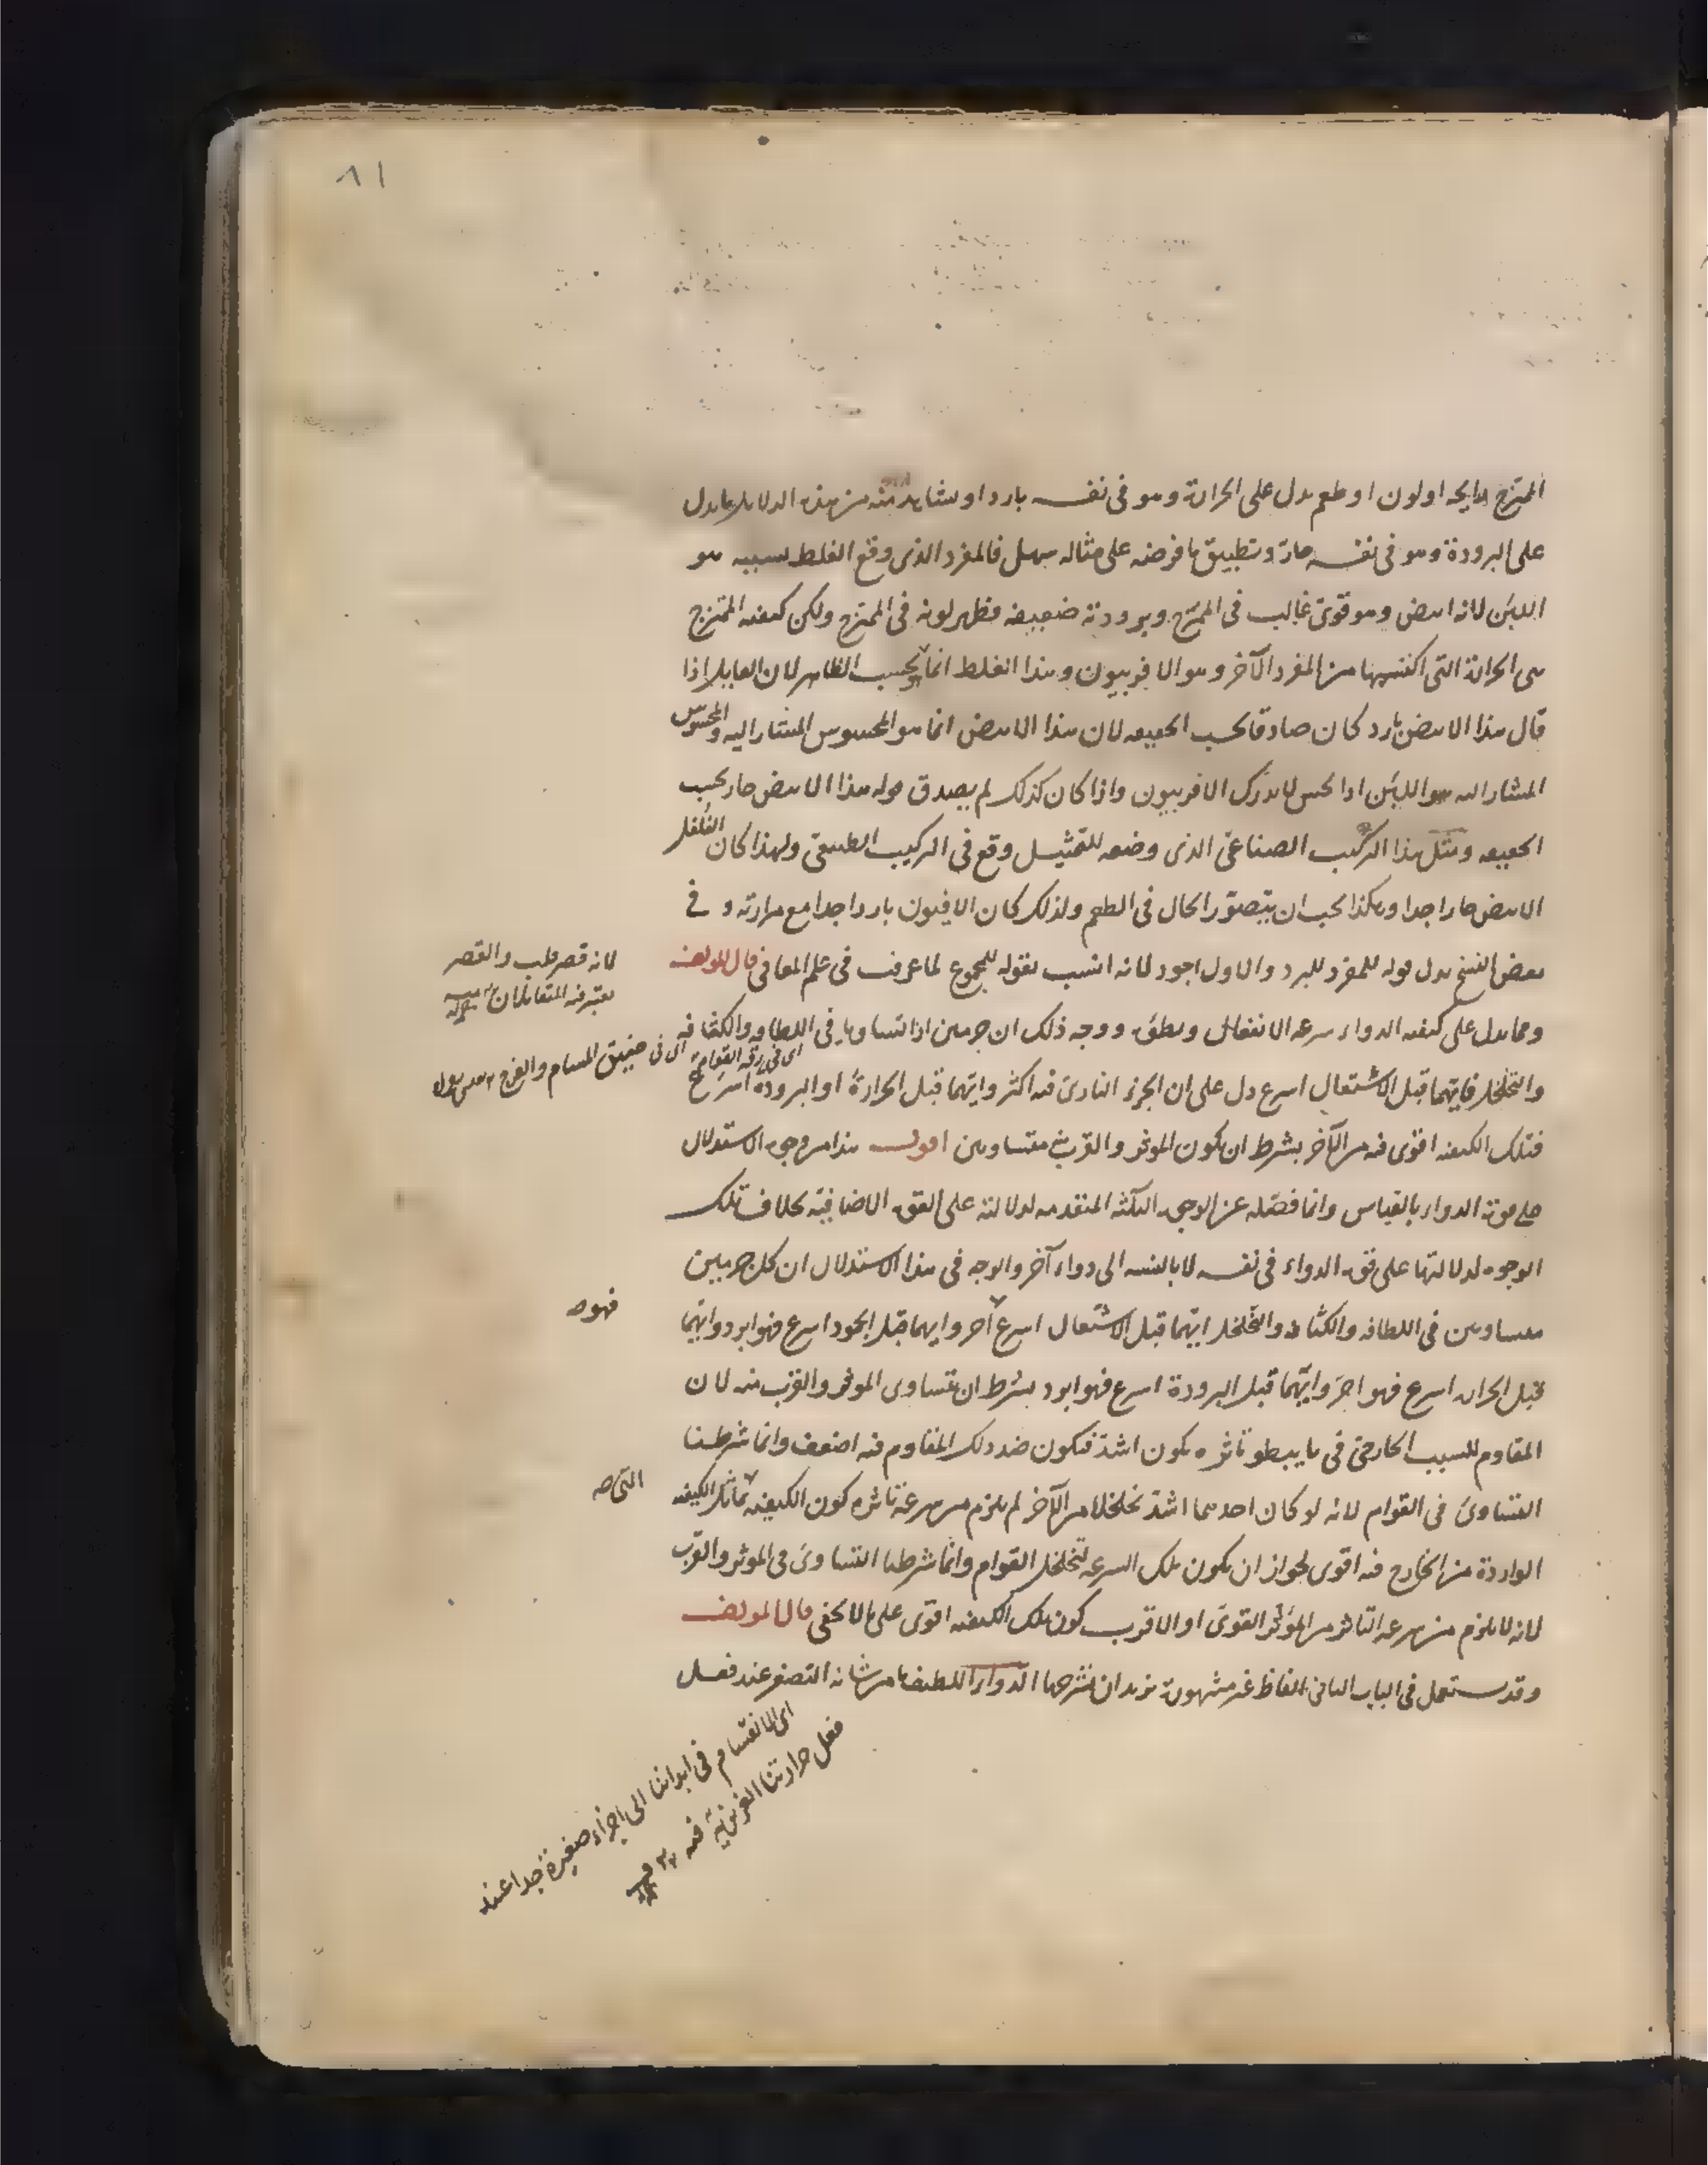 ٨١
الممتزج رايحه او لون او طعم يدل على الحرارة وهو فى نفسه بارد او يشاهد منه من هذه الدلايل ما يدل
على البرودة وهو فى نفسه حار وتطبيق ما فرضه على مثاله سهل فالمفرد الذى وقع الغلط بسببه هو
اللبن لانه ابيض وهو قوى غالب فى الممتزج وبرودته ضعيفه فظهر لونه فى الممتزج ولكن كيفيه الممتزج
هى الحرارة التى اكتسبها من المفرد الآخر وهو الافربيون وهذا الغلط انما بحسب الظاهر لان القايل اذا
قال هذا الابيض بارد كان صادقا بحسب الحقيقه لان هذا الابيض انما هو المحسوس المشار اليه والمحسوس
المشار اليه هو اللبن اذ الحس لا يدرك الافربيون واذا كان كذلك لم يصدق قوله هذا الابيض حار بحسب
الحقيقه ومثل هذا التركيب الصناعى الذى وضعه للتمثيل وقع فى التركيب الطبيعى ولهذا كان الفلفل
الابيض حارا جدا وهكذا يجب ان يتصور الحال فى الطعم ولذلك كان الافيون باردا جدا مع مرارته و فى
بعض النسخ بدل قوله للمفرد للبرد والاول اجود لانه انسب بقوله للمجموع لما عرفت فى علم المعانى قال المولف
ومما يدل على كيفيه الدواء سرعه الانفعال وبطؤه ووجه ذلك ان جرمين اذا تساويا فى اللطافه والكثافه
والتخلخل فايهما قبل الاشتعال اسرع دل على ان الجزء النارى فيه اكثر وايهما قبل الحرارة او البرودة اسرع
فتلك الكيفيه اقوى فيه من الآخر بشرط ان يكون الموثر والقرب منه متساويين اقول هذا من وجوه الاستدلال
على قوة الدواء بالقياس وانما فصله عن الوجوه الثلثه المتقدمه لدلالته على القوة الاضافيه بخلاف تلك
الوجوه لدلالتها على قوة الدواء فى نفسه لا بالنسبه الى دواء آخر والوجه فى هذا الاستدلال ان كل جرمين
متساويين فى اللطافه والكثافه والتخلخل ايهما قبل الاشتعال اسرع احر وايهما قبل الجمود اسرع فهو ابرد وايهما
قبل الحرارة اسرع فهو احر وايهما قبل البرودة اسرع فهو ابرد بشرط ان يتساوى الموثر والقرب منه لان
المقاوم للسبب الخارجى فى ما يبطو تاثره يكون اشد فيكون ضد ذلك المقاوم فيه اضعف وانما شرطنا
التساوى فى القوام لانه لو كان احدهما اشد تخلخلا من الآخر لم يلزم من سرعة تاثره كون الكيفيه تماثل الكيفيه
الواردة من الخارج فيه اقوى لجواز ان يكون تلك السرعه لتخلخل القوام وانما شرطنا التساوى فى الموثر والقرب
لانه لا يلزم من سرعه التاثر من المؤثر القوى او الاقرب كون تلك الكيفيه اقوى على ما لا يخفى قال المولف
وقد يستعمل فى الباب الثانى الفاظ غير مشهورة نريد ان نشرحها الدواء اللطيف ما من شانه التصغر عند فعل
لانه قصر قلب والقصر
يعتبر فيه المتقابلان
اى فى رقة القوام
اى فى ضيق المسام والفرج
فهو صح
التى صح
اى الانقسام فى ابداننا الى اجزاء صغيرة جدا عند
فعل حرارتنا الغريزية فيه